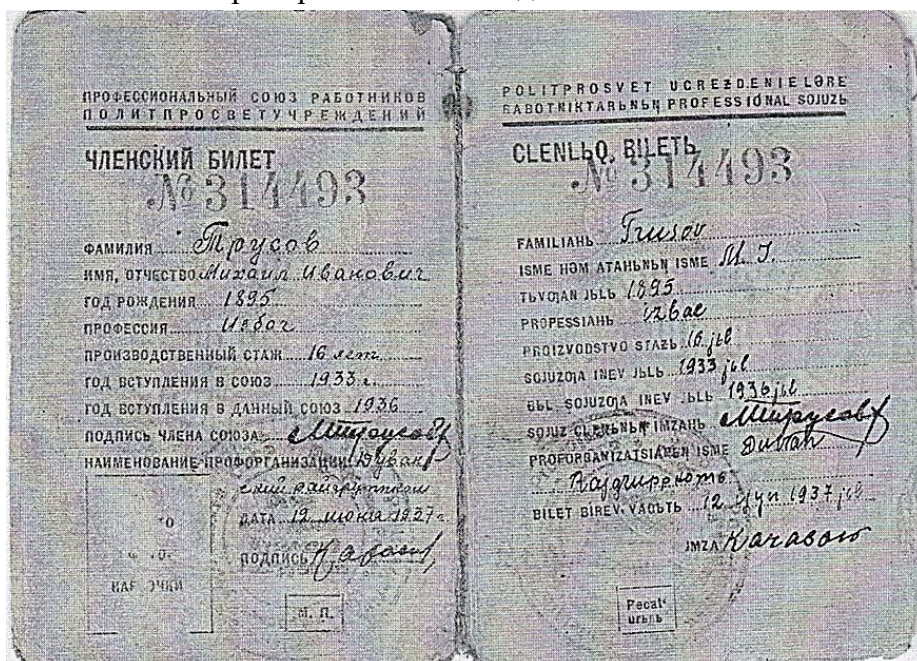 ПРОФЕССИОНАЛЬНЫЙ СОЮЗ РАБОТНИКОВ
ПОЛИТПРОСВЕТУЧРЕЖДЕНИЙ
ЧЛЕНСКИЙ БИЛЕТ
№ 314493
ФАМИЛИЯ Трусов
ИМЯ, ОТЧЕСТВО Михаил Иванович
ГОД РОЖДЕНИЯ 1895
ПРОФЕССИЯ Избач
ПРОИЗВОДСТВЕННЫЙ СТАЖ 16 лет
ГОД ВСТУПЛЕНИЯ В СОЮЗ 1933 г.
ГОД ВСТУПЛЕНИЯ В ДАННЫЙ СОЮЗ 1936
ПОДПИСЬ ЧЛЕНА СОЮЗА
НАИМЕНОВАНИЕ ПРОФОРГАНИЗАЦИИ Дуван
ский райгруппком
ДАТА 12 июня 1937 г.
ПОДПИСЬ
КАРТОЧКИ
М. П.
POLITPROSVET UCREƵDENIELƏRE
RABOTNIKTARЬNЬN PROFESSIONAL SOJUZЬ
CLENLЬQ BILETЬ
№ 314493
FAMILIAHЬ Trusov
ISME HƏM ATAHЬNЬN ISME M. I.
TЬVOJAN JЬLЬ 1895
PROFESSIAHЬ izbac
PROIZVODSTVO STAƵЬ 16 jьl
SOJUZOJA INEV JЬLЬ 1933 jьl
BЬL SOJUZOJA INEV JЬLЬ 1936 jьl
SOJUZ CLENЬNЬN IMZAHЬ
PROFORGANIZATSIANЬN ISME Duvan
Rajgruppkom
BILET BIREV VAQЬTЬ 12 ijun 1937 jьl
IMZA Karasow
Pecat'
urьnь